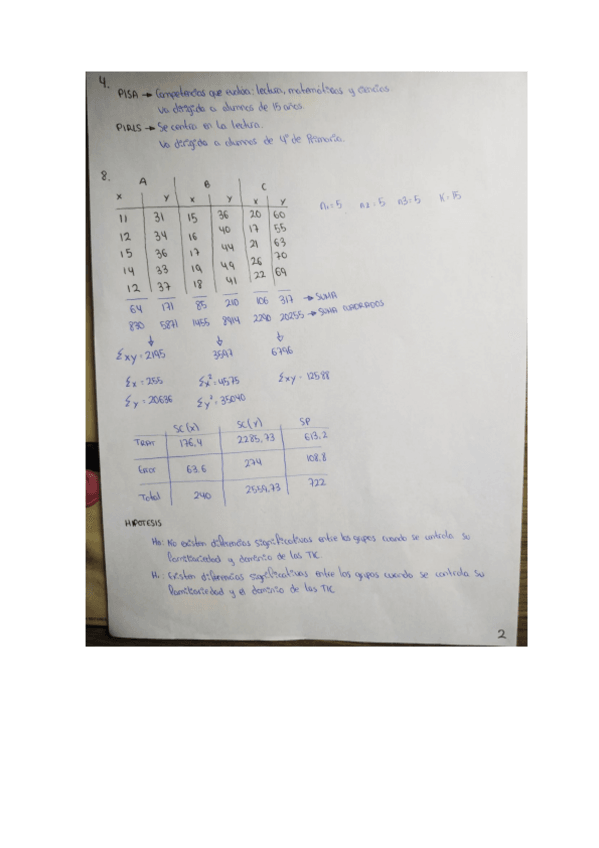 4.
PISA → Competencias que evalúa: lectura, matemáticas y ciencias
Va dirigido a alumnos de 15 años.
PIRLS → Se centra en la lectura.
Va dirigido a alumnos de 4º de Primaria.
8.
A B C
x y x y x y n1=5 n2=5 n3=5 K=15
11 31 15 36 20 60
12 34 16 40 17 55
15 36 17 44 21 63
14 33 19 49 26 70
12 37 18 41 22 69
64 171 85 210 106 317 → SUMA
830 5871 1455 8914 2290 20255 → SUMA CUADRADOS
↓ ↓ ↓
Σxy=2195 3597 6796
Σx=255 Σx²=4575 Σxy=12588
Σy=20636 Σy²=35040
SC(x) SC(y) SP
TRAT 176,4 2285,73 613,2
Error 63.6 274 108.8
Total 240 2559,73 722
HIPOTESIS
H0: No existen diferencias significativas entre los grupos cuando se controla su
familiariedad y dominio de las TIC.
H1: Existen diferencias significativas entre los grupos cuando se controla su
familiariedad y el dominio de las TIC
2